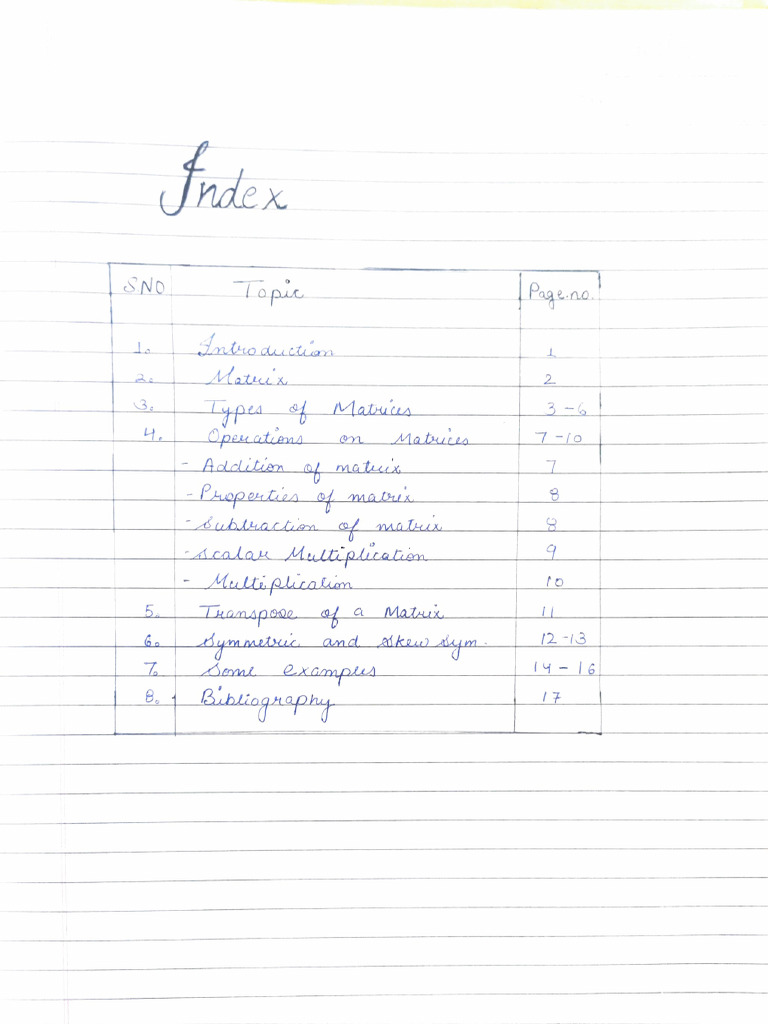 Index
SNO Topic Page.no.
1. Introduction 1
2. Matrix 2
3. Types of Matrices 3-6
4. Operations on Matrices 7-10
- Addition of matrix 7
- Properties of matrix 8
- Subtraction of matrix 8
- Scalar Multiplication 9
- Multiplication 10
5. Transpose of a Matrix 11
6. Symmetric and Skew Sym. 12-13
7. Some examples 14-16
8. Bibliography 17